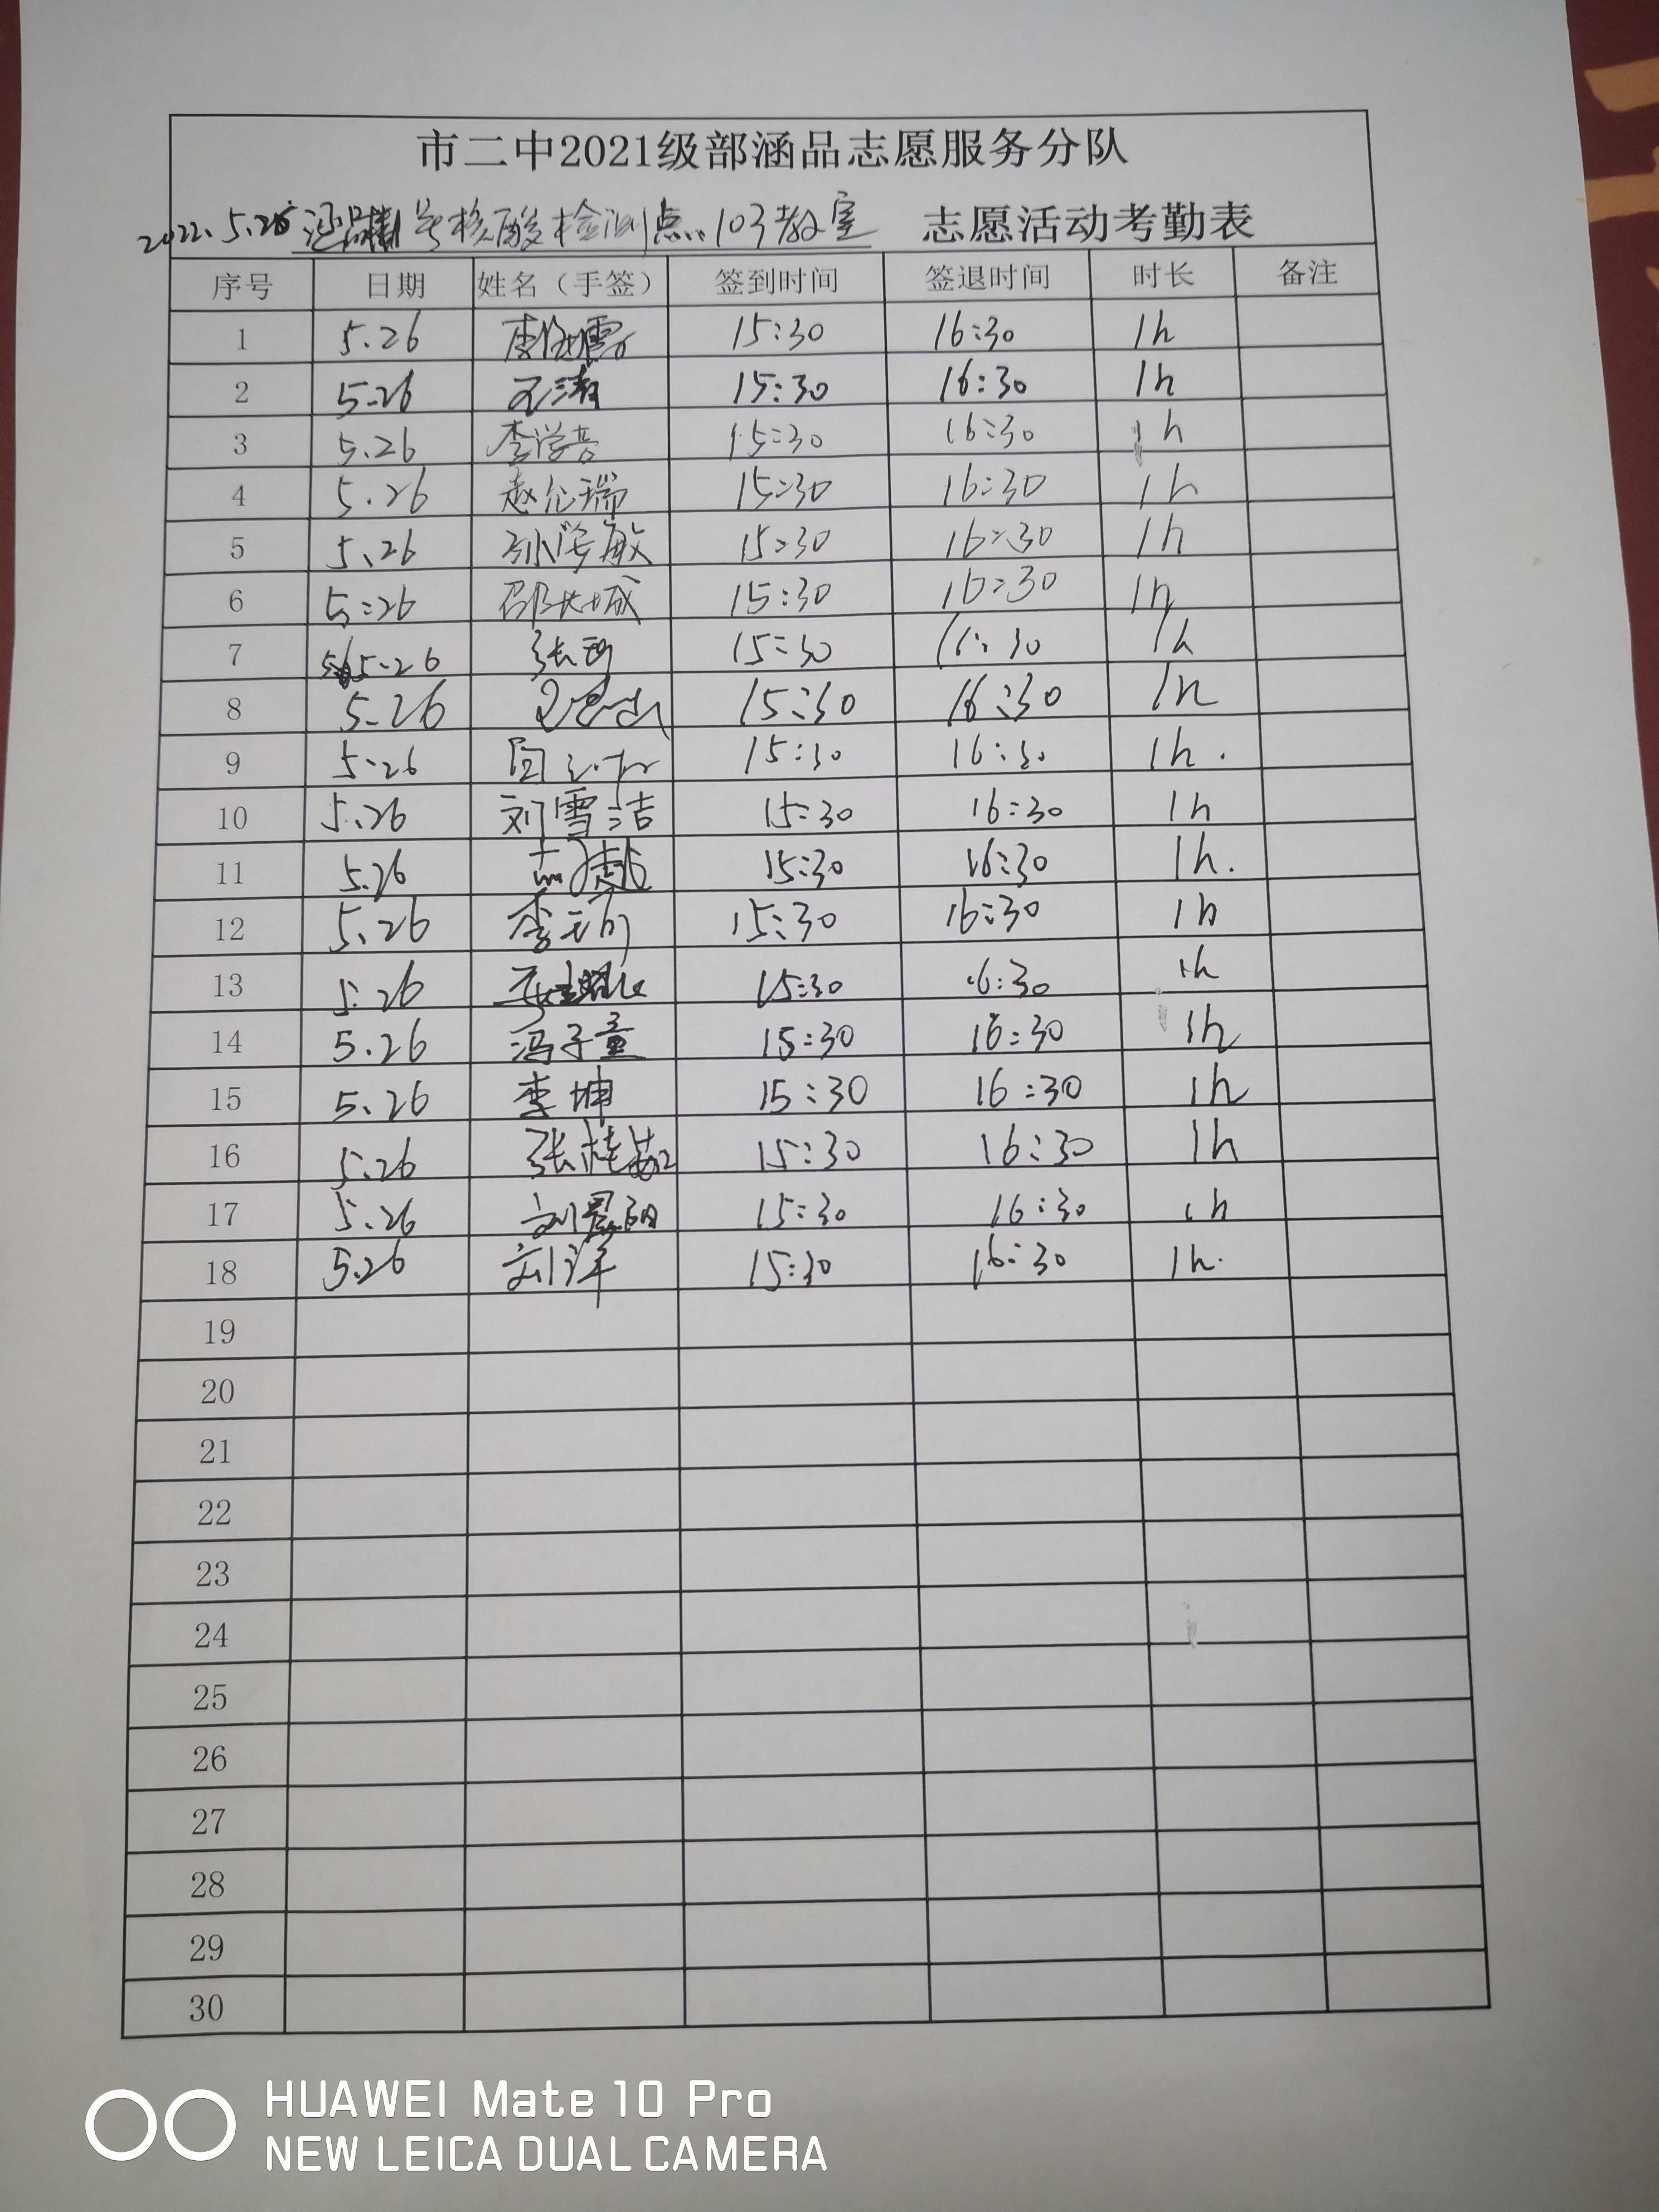 市二中2021级部涵品志愿服务分队
2022.5.26 涵品楼1号核酸检测点 103教室 志愿活动考勤表
序号 日期 姓名（手签） 签到时间 签退时间 时长 备注
1 5.26 15:30 16:30 1h
2 5.26 15:30 16:30 1h
3 5.26 15:30 16:30 1h
4 5.26 15:30 16:30 1h
5 5.26 15:30 16:30 1h
6 5:26 15:30 16:30 1h
7 5.26 张 15:30 16:30 1h
8 5.26 15:30 16:30 1h
9 5.26 15:30 16:30 1h.
10 5.26 刘雪洁 15:30 16:30 1h
11 5.26 15:30 16:30 1h.
12 5.26 李 15:30 16:30 1h
13 5.26 15:30 16:30 1h
14 5.26 冯子童 15:30 16:30 1h
15 5.26 李坤 15:30 16:30 1h
16 5.26 张桂茹 15:30 16:30 1h
17 5.26 刘晨阳 15:30 16:30 1h
18 5.26 刘洋 15:30 16:30 1h.
19
20
21
22
23
24
25
26
27
28
29
30
HUAWEI Mate 10 Pro
NEW LEICA DUAL CAMERA